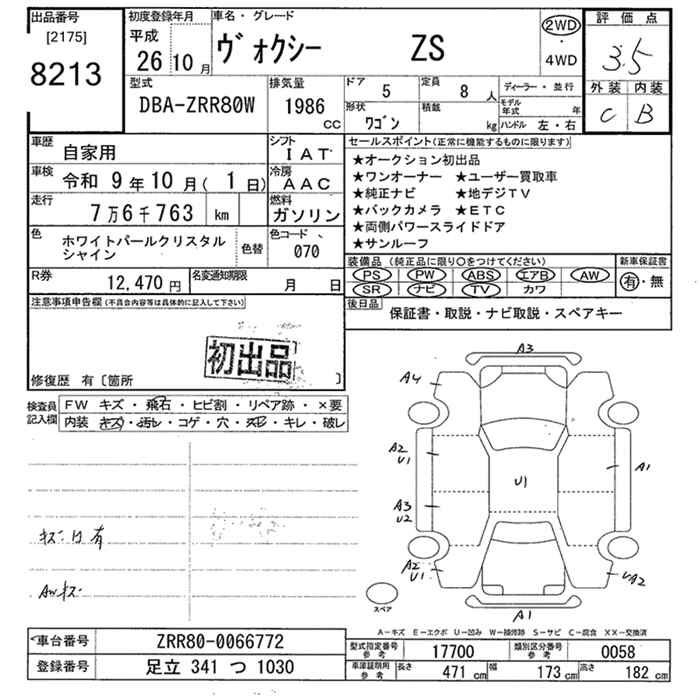 出品番号 初度登録年月 車名・グレード 2WD 評価点
[2175] 平成 ヴォクシー ZS ・ 3.5
8213 26 10 月 4WD
外装 内装
型式 排気量 ドア 5 定員 8 人 ディーラー・並行 C B
DBA-ZRR80W 1986 cc 形状 ワゴン 積載 kg モデル年式 年
ハンドル 左・右
車歴 自家用 シフト IAT セールスポイント(正常に機能するものに限ります)
★オークション初出品
車検 令和 9年 10月( 1日) 冷房 AAC ★ワンオーナー ★ユーザー買取車
★純正ナビ ★地デジTV
走行 7万6千763 km 燃料 ガソリン ★バックカメラ ★ETC
★両側パワースライドドア
色 ホワイトパールクリスタル 色替 色コード 070 ★サンルーフ
シャイン
装備品 (純正品に限り○をつけてください) 新車保証書
R券 12,470 円 名変通知期限 月 日 PS PW ABS エアB AW 有・無
SR ナビ TV カワ
注意事項申告欄(不具合内容等は具体的に記入して下さい) 後日品 保証書・取説・ナビ取説・スペアキー
初出品
修復歴 有〔箇所 〕
検査員記入欄 FW キズ・飛石・ヒビ割・リペア跡・×要
内装 キズ・汚レ・コゲ・穴・欠・キレ・破レ
A3
A4
A2
U1
U1
A1
A3
U2
キズ 有
A2
U1
UA2
AWキズ
スペア
A1
A―キズ E―エクボ U―凹み W―補修跡 S―サビ C―腐食 XX―交換済
車台番号 ZRR80-0066772 型式指定番号 参考 17700 類別区分番号 参考 0058
登録番号 足立 341 つ 1030 車庫証明用 参考 長さ 471 cm 幅 173 cm 高さ 182 cm